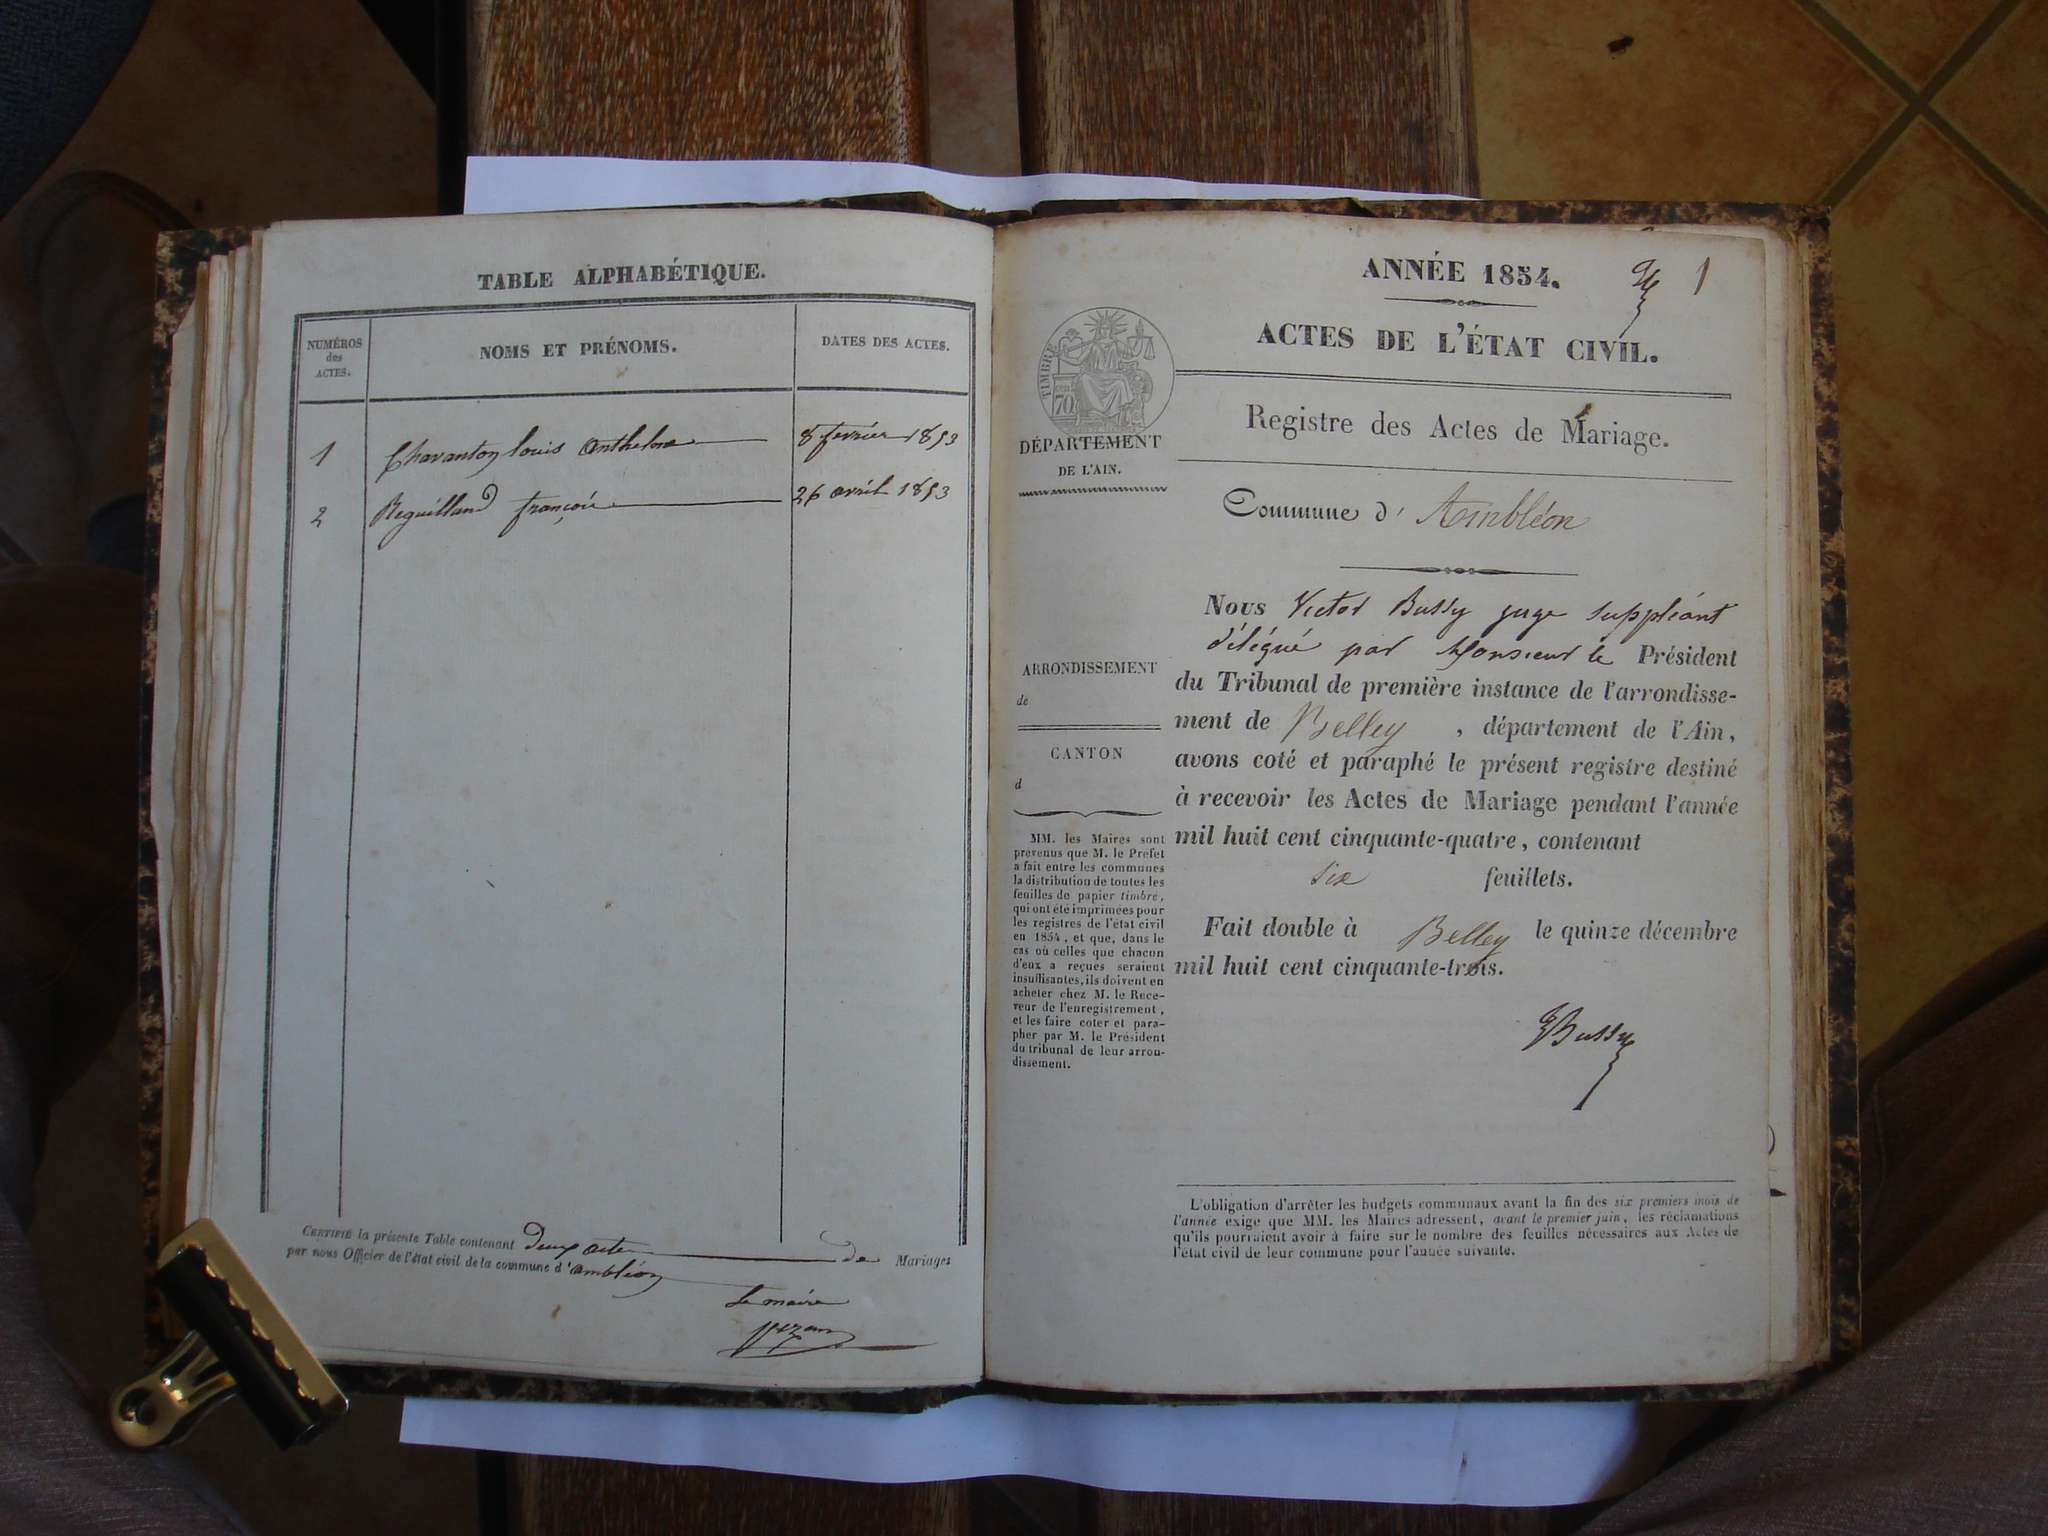 TABLE ALPHABÉTIQUE.
NUMÉROS
des
ACTES.
NOMS ET PRÉNOMS.
DATES DES ACTES.
1 Chavanton louis anthelme 8 fevrier 1853
2 Reguilland françois 26 avril 1853
CERTIFIÉ la présente Table contenant deux actes de Mariages
par nous Officier de l'état civil de la commune d'ambléon
Le maire
ANNÉE 1854.
1
ACTES DE L'ÉTAT CIVIL.
TIMBRE
70
DÉPARTEMENT
DE L'AIN.
Registre des Actes de Mariage.
Commune d' Ambléon
ARRONDISSEMENT
de
CANTON
d
MM. les Maires sont
prévenus que M. le Préfet
a fait entre les communes
la distribution de toutes les
feuilles de papier timbre,
qui ont été imprimées pour
les registres de l'état civil
en 1854, et que, dans le
cas où celles que chacun
d'eux a reçues seraient
insuffisantes, ils doivent en
acheter chez M. le Rece-
veur de l'enregistrement,
et les faire coter et para-
pher par M. le Président
du tribunal de leur arron-
dissement.
Nous Victor Bussy juge suppléant
délégué par Monsieur le Président
du Tribunal de première instance de l'arrondisse-
ment de Belley, département de l'Ain,
avons coté et paraphé le présent registre destiné
à recevoir les Actes de Mariage pendant l'année
mil huit cent cinquante-quatre, contenant
six feuillets.
Fait double à Belley le quinze décembre
mil huit cent cinquante-trois.
Bussy
L'obligation d'arrêter les budgets communaux avant la fin des six premiers mois de
l'année exige que MM. les Maires adressent, avant le premier juin, les réclamations
qu'ils pourraient avoir à faire sur le nombre des feuilles nécessaires aux Actes de
l'état civil de leur commune pour l'année suivante.